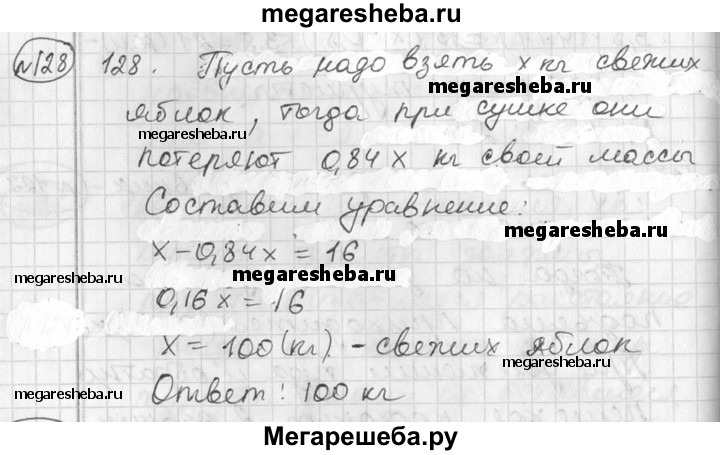 megaresheba.ru
№128 128. Пусть надо взять x кг свежих
megaresheba.ru
яблок, тогда при сушке они
megaresheba.ru
потеряют 0,84x кг своей массы
Составим уравнение:
megaresheba.ru
x-0,84x=16
megaresheba.ru megaresheba.ru
0,16x=16
x=100(кг) - свежих яблок
megaresheba.ru
Ответ: 100 кг
megaresheba.ru megaresheba.ru
Мегарешеба.ру